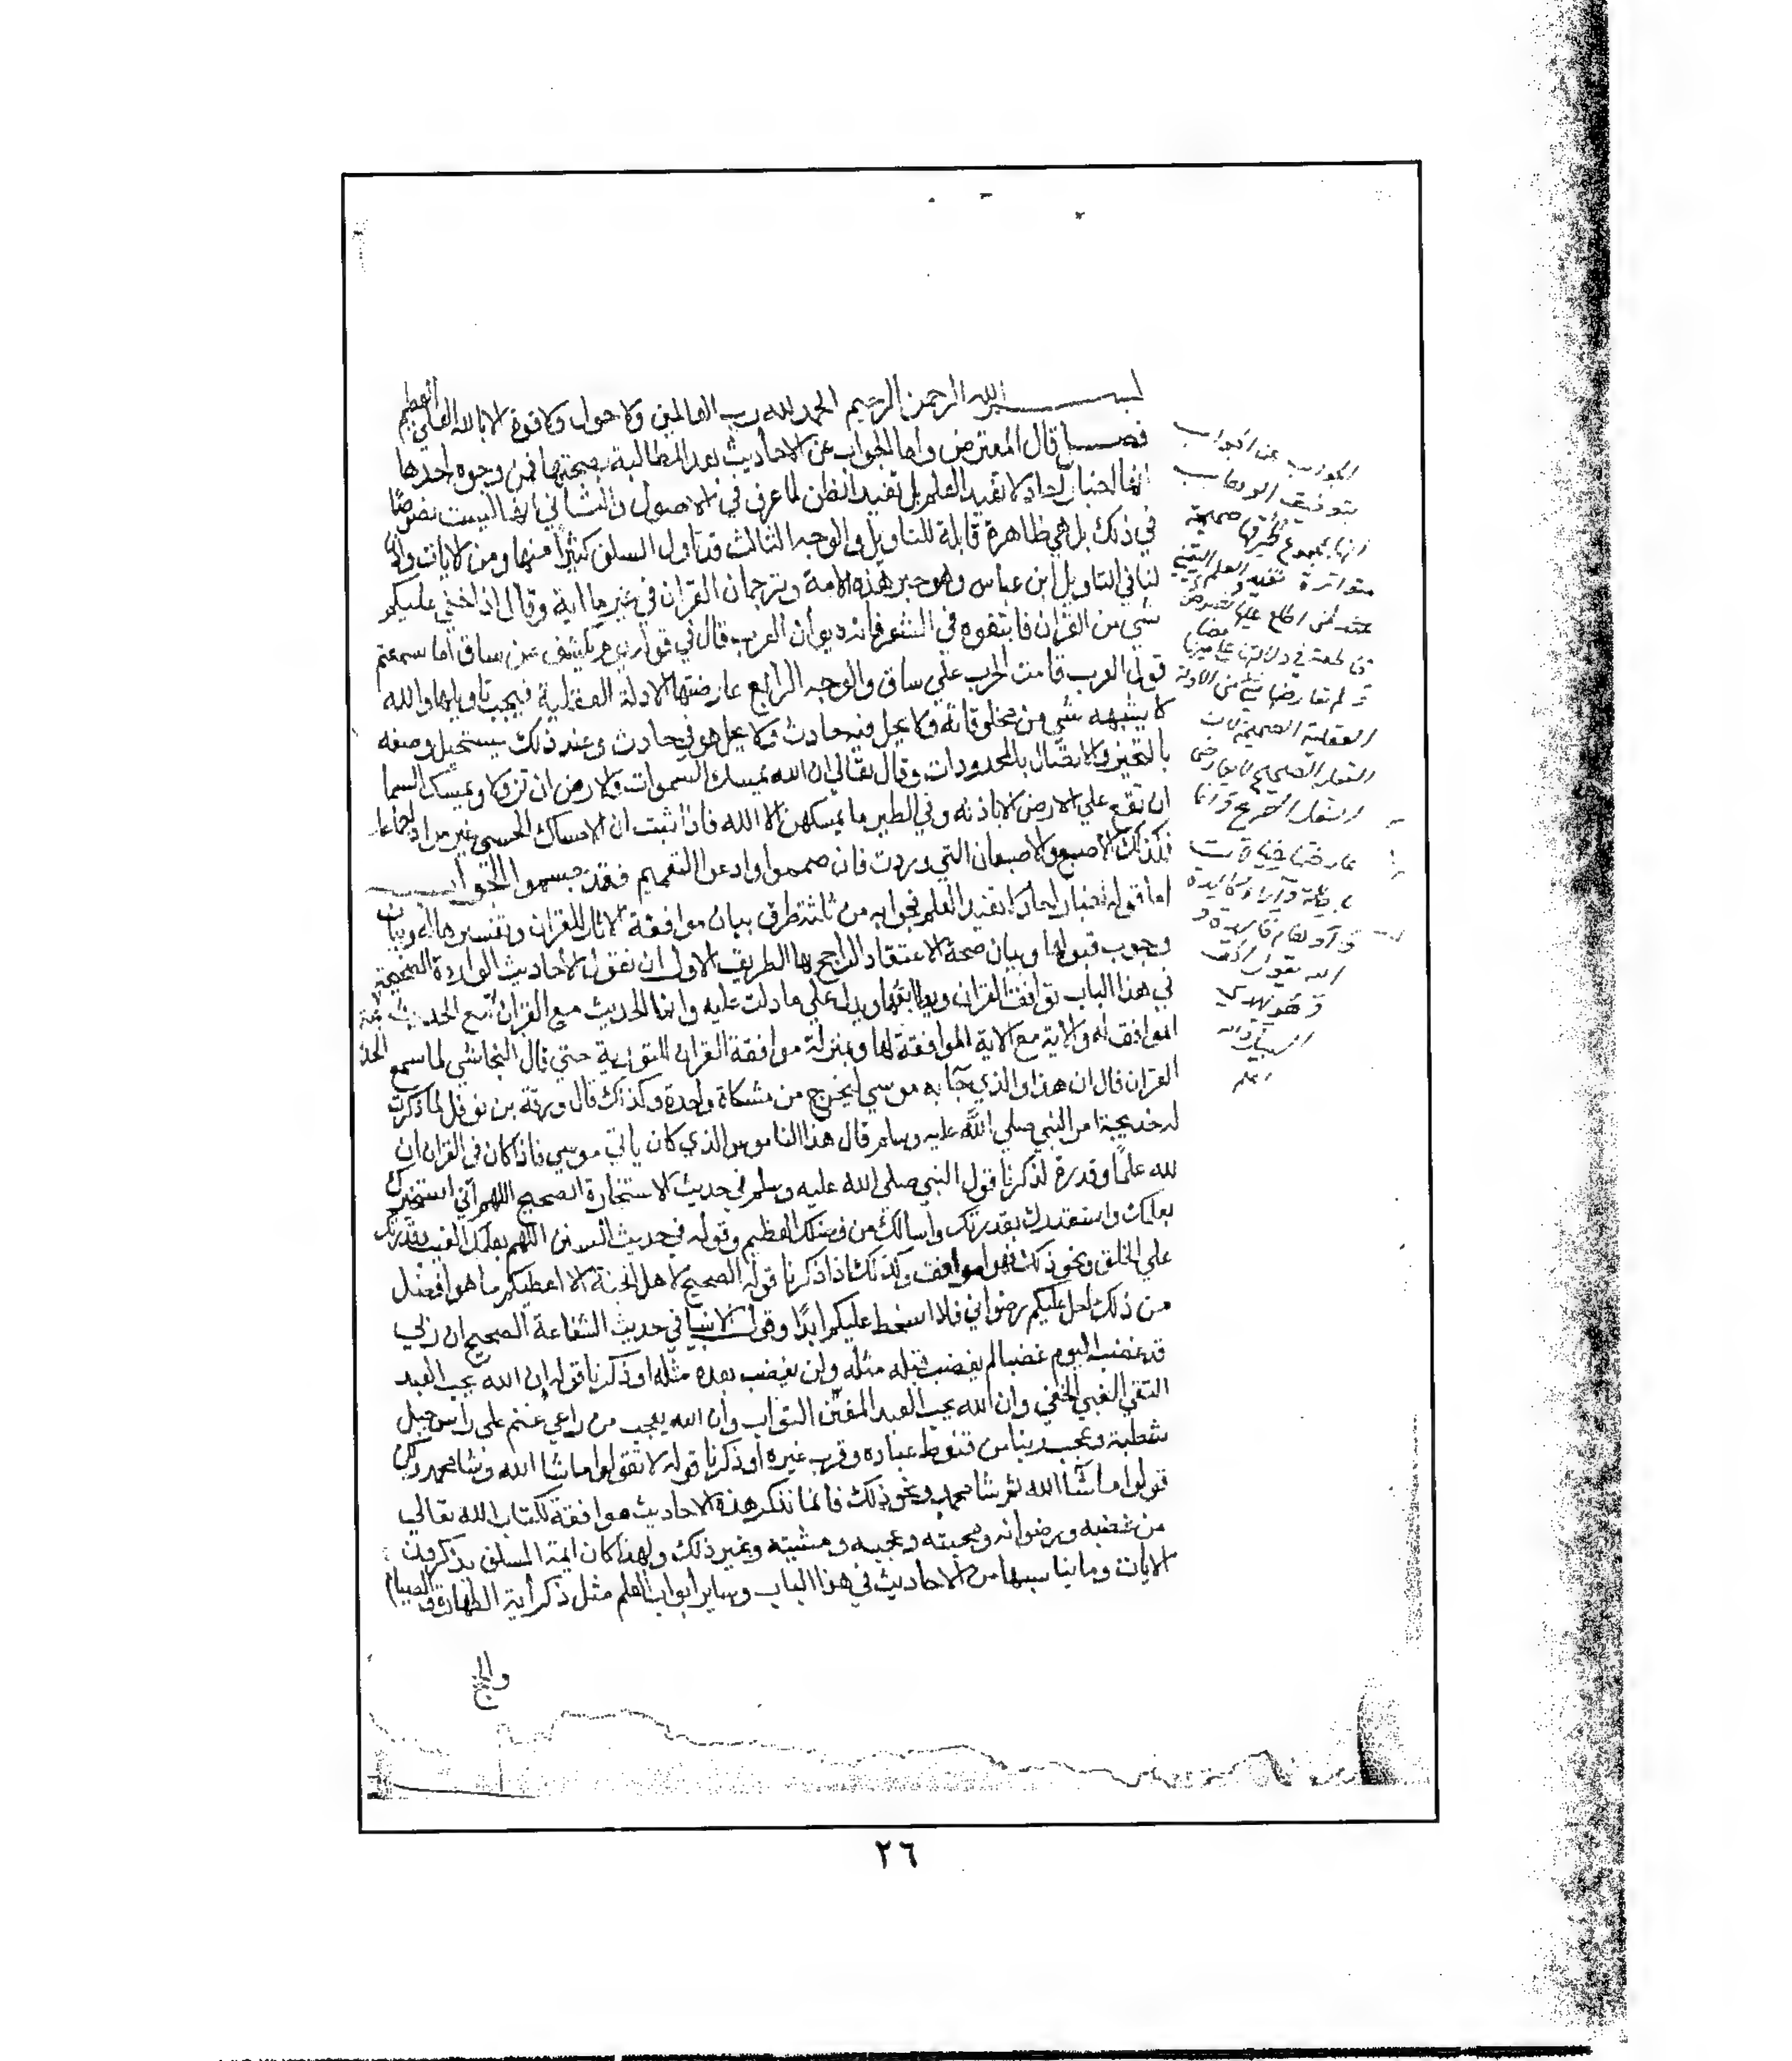 بسم الله الرحمن الرحيم الحمد لله رب العالمين ولا حول ولا قوة الا بالله العلي العظيم
فصل قال المعترض واما الجواب عن الاحاديث بعد المطالبة بصحتها فمن وجوه احدها
انها اخبار آحاد لا تفيد العلم بل تفيد الظن لما عرف في الاصول والثاني انها ليست نصوصًا
في ذلك بل هي ظاهرة قابلة للتاويل والوجه الثالث قد تاول السلف كثيرًا منها ومن الايات
لنا في التاويل ابن عباس وهو حبر هذه الامة وترجمان القران في غير ما اية وقال اذا خفي عليكم
شي من القران فابتغوه في الشعر فانه ديوان العرب قال في قوله يوم يكشف عن ساق أما سمعتم
قول العرب قامت الحرب علي ساق والوجه الرابع عارضتها الادلة العقلية فيجب تاويلها والله
لا يشبهه شي من مخلوقاته ولا يحل فيه حادث ولا يحل هو في حادث وعند ذلك يستحيل وصفه
بالتحيز والاتصال بالمحدودات وقال تعالي ان الله يمسك السموات والارض ان تزولا ويمسك السما
ان تقع علي الارض الا باذنه وفي الطير ما يمسكهن الا الله فاذا ثبت ان الامساك الحسي غير مراد اجماعا
فكذلك الاصبع والاصبعان التي وردت فان صمموا وادعوا التعميم فقد جسموا الجواب
اما قوله اخبار احاد لا تفيد العلم فجوابه من ثلثة طرق بيان موافقة الاثار للقران وتفسيرها له وبيان
وجوب قبولها وبيان صحة الاعتقاد الراجح بها الطريق الاول ان نقول الأحاديث الواردة الصحيحة
في هذا الباب توافق القران ويطابقها ويدل علي ما دلت عليه وانما الحديث مع القران مع الحديث
الموافق له والاية مع الاية الموافقة لها وبمنزلة موافقة القران للتورية حتي قال النجاشي لما سمع
القران قال ان هذا والذي جآ به موسي ليخرج من مشكاة واحدة وكذلك قال ورقة بن نوفل لما ذكرت
له خديجة امر النبي صلي الله عليه وسلم قال هذا الناموس الذي كان ياتي موسي فاذا كان في القران ان
لله علمًا وقدرة لذكرنا قول النبي صلى الله عليه وسلم في حديث الاستخارة الصحيح اللهم اني استخيرك
بعلمك واستقدرك بقدرتك وأسالك من فضلك العظيم وقوله في حديث السنن اللهم بعلمك الغيب بقدرتك
علي الخلق ونحو ذلك موافق وكذلك اذا ذكرنا قوله الصحيح لاهل الجنة الا اعطيكم ما هو افضل
من ذلك احل عليكم رضواني فلا اسخط عليكم ابدًا وقول الانبيا في حديث الشفاعة الصحيح ان ربي
قد غضب اليوم غضبا لم يغضب قبله مثله ولن يغضب بعده مثله او ذكرنا قوله ان الله يحب العبد
التقي الغني الخفي وان الله يحب العبد المفتن التواب وان الله يعجب من راعي غنم على رأس جبل
شظية وعجب ربنا من قنوط عباده وقرب غيره أو ذكرنا قوله لا تقولوا ما شا الله وشا محمد ولكن
قولوا ما شآ الله ثم شا محمد ونحو ذلك فانما نذكر هذه الاحاديث موافقة لكتاب الله تعالي
من غضبه ورضوانه ومحبته وعجبه ومشيته وغير ذلك ولهذا كان ايمة السلف يذكرون
الايات وما يناسبها من الاحاديث في هذا الباب وساير أبواب العلم مثل ذكر أية الطهارة والصيام
والحج
الجواب عن الجواب
بتوفيق الوهاب
انها بمجموع طرقها صحيحة
متواترة تفيد العلم اليقيني
عند من اطلع عليها نصوص
قاطعة في دلالتها
و لم تعارضها شي من الادلة
العقلية الصحيحة لان
النقل الصحيح لا يعارض
العقل الصريح وانما
عارضها خيالات
باطلة وآراء كاسدة
و أوهام فاسدة و
الله يقول الحق
و هو يهدي
السبيل والله
اعلم
٢٦